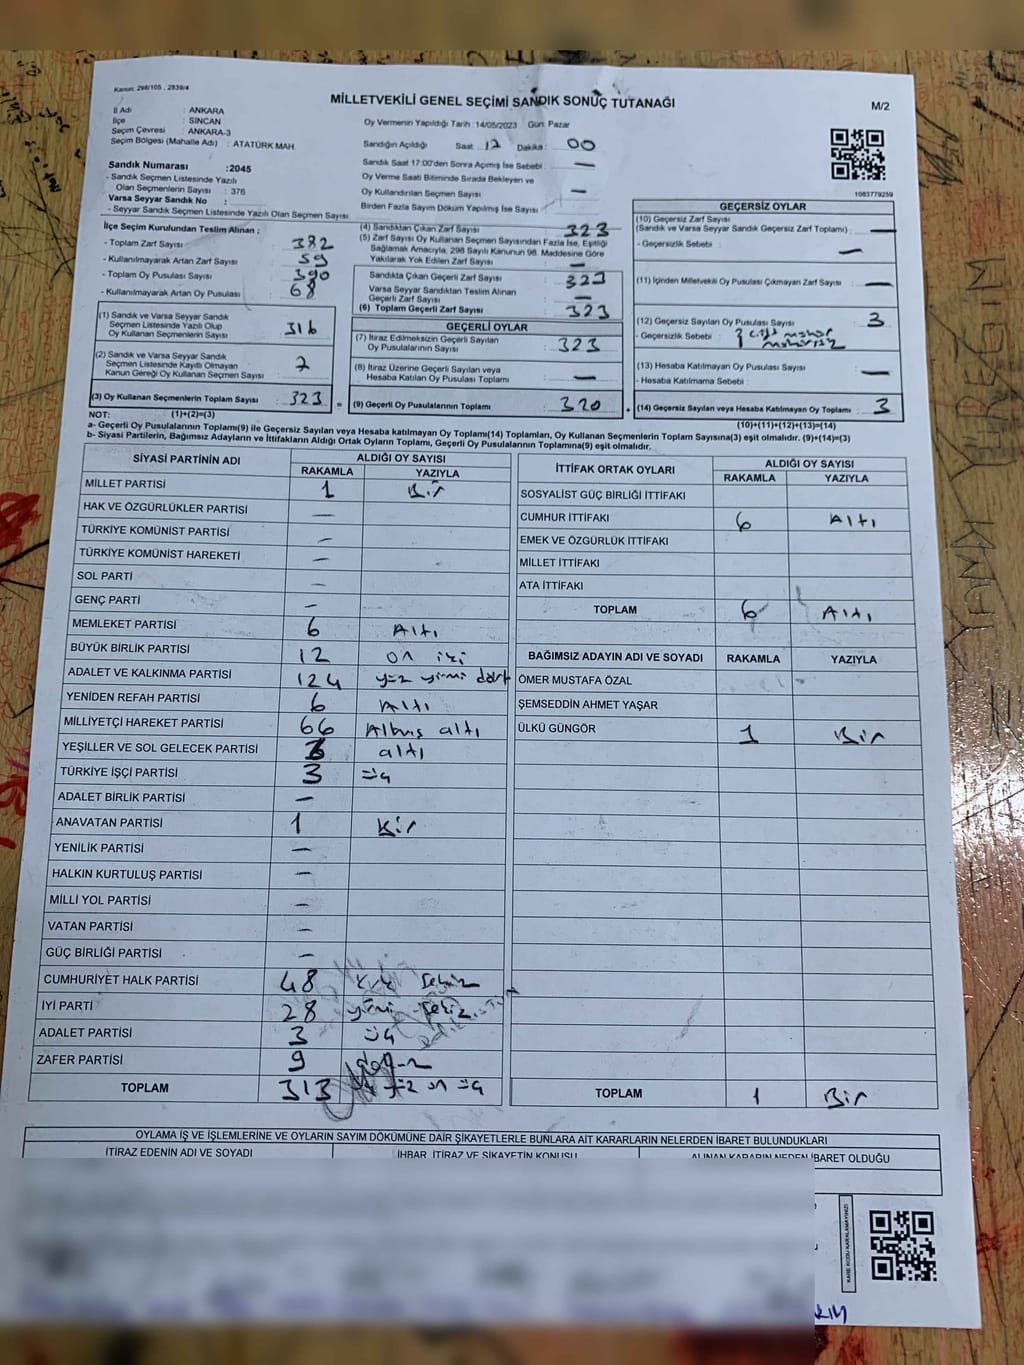 Kanun: 298/105 , 2839/4
MİLLETVEKİLİ GENEL SEÇİMİ SANDIK SONUÇ TUTANAĞI
M/2
İl Adı : ANKARA
İlçe : SİNCAN
Seçim Çevresi : ANKARA-3
Seçim Bölgesi (Mahalle Adı) : ATATÜRK MAH.
Sandık Numarası :2045
- Sandık Seçmen Listesinde Yazılı
Olan Seçmenlerin Sayısı : 376
Varsa Seyyar Sandık No :
- Seyyar Sandık Seçmen Listesinde Yazılı Olan Seçmen Sayısı
Oy Vermenin Yapıldığı Tarih :14/05/2023 Gün: Pazar
Sandığın Açıldığı Saat 17 Dakika : 00
Sandık Saat 17:00'den Sonra Açılmış İse Sebebi : —
Oy Verme Saati Bitiminde Sırada Bekleyen ve
Oy Kullandırılan Seçmen Sayısı —
Birden Fazla Sayım Döküm Yapılmış İse Sayısı :
1083779259
İlçe Seçim Kurulundan Teslim Alınan ;
- Toplam Zarf Sayısı : 382
- Kullanılmayarak Artan Zarf Sayısı : 59
- Toplam Oy Pusulası Sayısı : 390
- Kullanılmayarak Artan Oy Pusulası : 68
(1) Sandık ve Varsa Seyyar Sandık
Seçmen Listesinde Yazılı Olup
Oy Kullanan Seçmenlerin Sayısı : 316
(2) Sandık ve Varsa Seyyar Sandık
Seçmen Listesinde Kayıtlı Olmayan
Kanun Gereği Oy Kullanan Seçmen Sayısı : 7
(3) Oy Kullanan Seçmenlerin Toplam Sayısı : 323 =
NOT: (1)+(2)=(3)
(4) Sandıktan Çıkan Zarf Sayısı 323
(5) Zarf Sayısı Oy Kullanan Seçmen Sayısından Fazla İse, Eşitliği
Sağlamak Amacıyla, 298 Sayılı Kanunun 98. Maddesine Göre
Yakılarak Yok Edilen Zarf Sayısı : —
Sandıkta Çıkan Geçerli Zarf Sayısı : 323
Varsa Seyyar Sandıktan Teslim Alınan
Geçerli Zarf Sayısı : —
(6) Toplam Geçerli Zarf Sayısı : 323
GEÇERLİ OYLAR
(7) İtiraz Edilmeksizin Geçerli Sayılan
Oy Pusulalarının Sayısı : 323
(8) İtiraz Üzerine Geçerli Sayılan veya
Hesaba Katılan Oy Pusulası Toplamı : —
(9) Geçerli Oy Pusulalarının Toplamı : 320 +
GEÇERSİZ OYLAR
(10) Geçersiz Zarf Sayısı
(Sandık ve Varsa Seyyar Sandık Geçersiz Zarf Toplamı) : —
- Geçersizlik Sebebi : —
(11) İçinden Milletvekili Oy Pusulası Çıkmayan Zarf Sayısı : —
(12) Geçersiz Sayılan Oy Pusulası Sayısı : 3
- Geçersizlik Sebebi : çift mühür
(13) Hesaba Katılmayan Oy Pusulası Sayısı : —
- Hesaba Katılmama Sebebi :
(14) Geçersiz Sayılan veya Hesaba Katılmayan Oy Toplamı : 3
(10)+(11)+(12)+(13)=(14)
a- Geçerli Oy Pusulalarının Toplamı(9) ile Geçersiz Sayılan veya Hesaba katılmayan Oy Toplamı(14) Toplamları, Oy Kullanan Seçmenlerin Toplam Sayısına(3) eşit olmalıdır. (9)+(14)=(3)
b- Siyasi Partilerin, Bağımsız Adayların ve İttifakların Aldığı Ortak Oyların Toplamı, Geçerli Oy Pusulalarının Toplamına(9) eşit olmalıdır.
SİYASİ PARTİNİN ADI ALDIĞI OY SAYISI
RAKAMLA YAZIYLA
MİLLET PARTİSİ 1 Bir
HAK VE ÖZGÜRLÜKLER PARTİSİ —
TÜRKİYE KOMÜNİST PARTİSİ —
TÜRKİYE KOMÜNİST HAREKETİ —
SOL PARTİ —
GENÇ PARTİ —
MEMLEKET PARTİSİ 6 Altı
BÜYÜK BİRLİK PARTİSİ 12 on iki
ADALET VE KALKINMA PARTİSİ 124 yüz yirmi dört
YENİDEN REFAH PARTİSİ 6 Altı
MİLLİYETÇİ HAREKET PARTİSİ 66 Altmış altı
YEŞİLLER VE SOL GELECEK PARTİSİ 6 altı
TÜRKİYE İŞÇİ PARTİSİ 3 üç
ADALET BİRLİK PARTİSİ —
ANAVATAN PARTİSİ 1 Bir
YENİLİK PARTİSİ —
HALKIN KURTULUŞ PARTİSİ —
MİLLİ YOL PARTİSİ —
VATAN PARTİSİ —
GÜÇ BİRLİĞİ PARTİSİ —
CUMHURİYET HALK PARTİSİ 48 kırk sekiz
İYİ PARTİ 28 yirmi sekiz
ADALET PARTİSİ 3 üç
ZAFER PARTİSİ 9 dokuz
TOPLAM 313 üç yüz on üç
İTTİFAK ORTAK OYLARI ALDIĞI OY SAYISI
RAKAMLA YAZIYLA
SOSYALİST GÜÇ BİRLİĞİ İTTİFAKI
CUMHUR İTTİFAKI 6 Altı
EMEK VE ÖZGÜRLÜK İTTİFAKI
MİLLET İTTİFAKI
ATA İTTİFAKI
TOPLAM 6 Altı
BAĞIMSIZ ADAYIN ADI VE SOYADI RAKAMLA YAZIYLA
ÖMER MUSTAFA ÖZAL
ŞEMSEDDİN AHMET YAŞAR
ÜLKÜ GÜNGÖR 1 Bir
TOPLAM 1 Bir
OYLAMA İŞ VE İŞLEMLERİNE VE OYLARIN SAYIM DÖKÜMÜNE DAİR ŞİKAYETLERLE BUNLARA AİT KARARLARIN NELERDEN İBARET BULUNDUKLARI
İTİRAZ EDENİN ADI VE SOYADI İHBAR, İTİRAZ VE ŞİKAYETİN KONUSU ALINAN KARARIN NEDEN İBARET OLDUĞU
KARE KODU KARALAMAYINIZ!